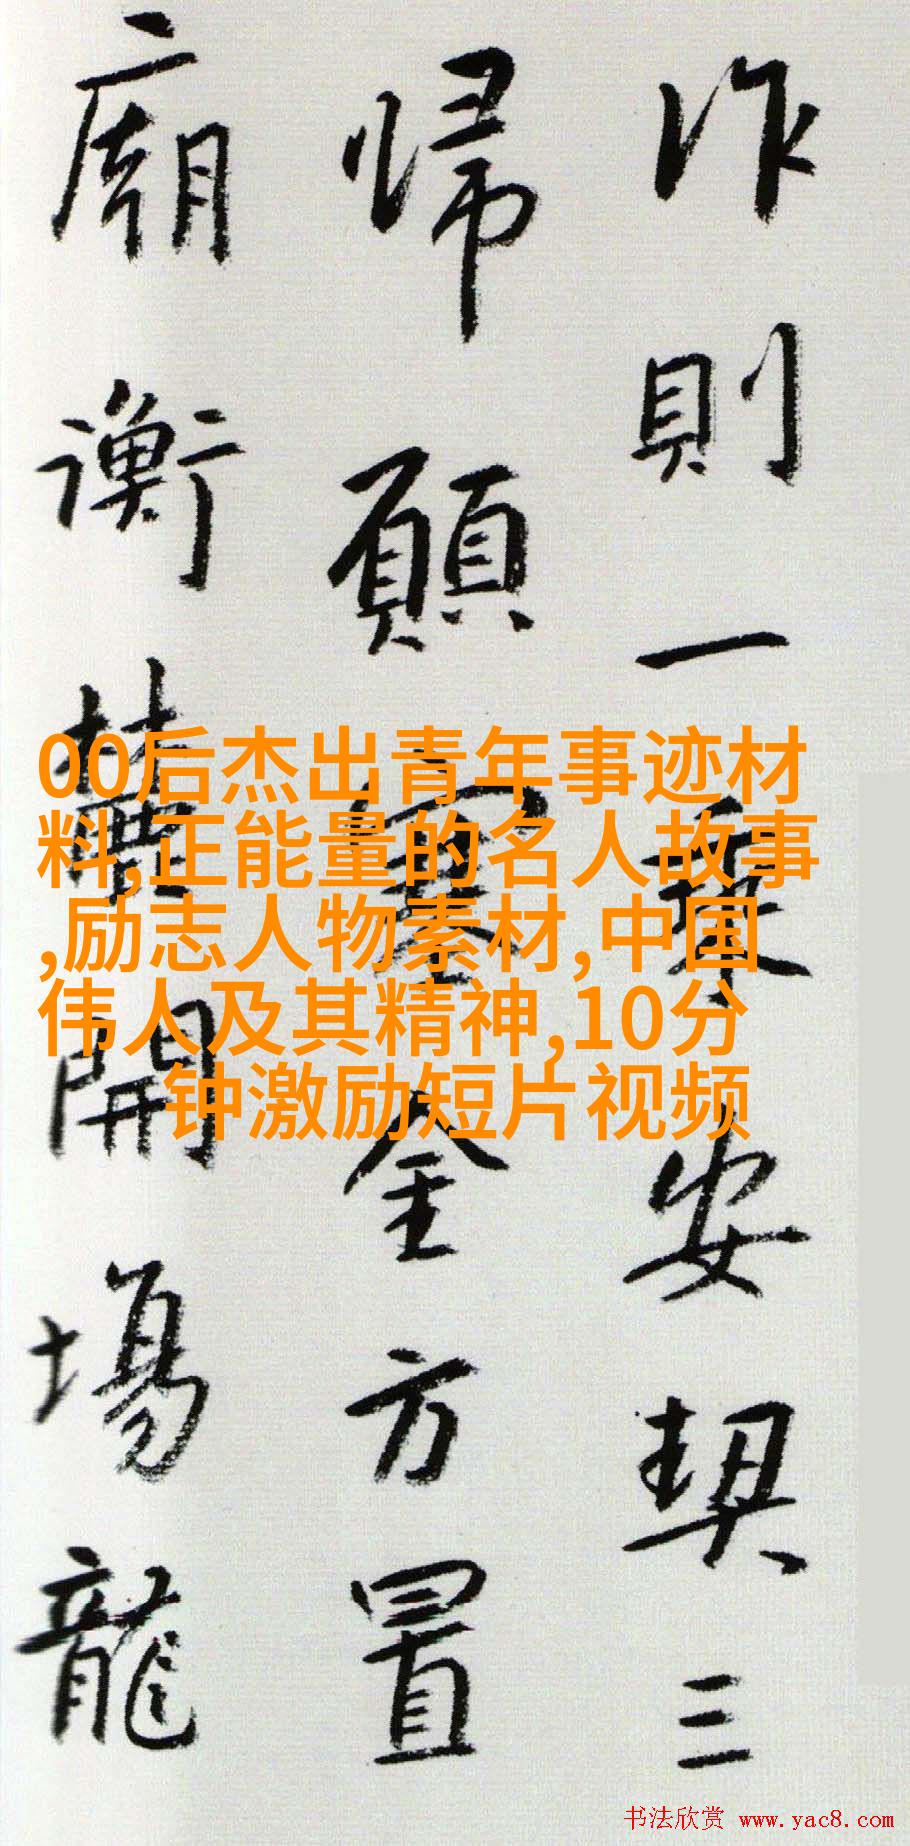 作則一乘安契三
歸願全方置
廟衡麓開場龍
00后杰出青年事迹材
料,正能量的名人故事
,励志人物素材,中国
伟人及其精神,10分
钟激励短片视频
书法欣赏 www.yac8.com